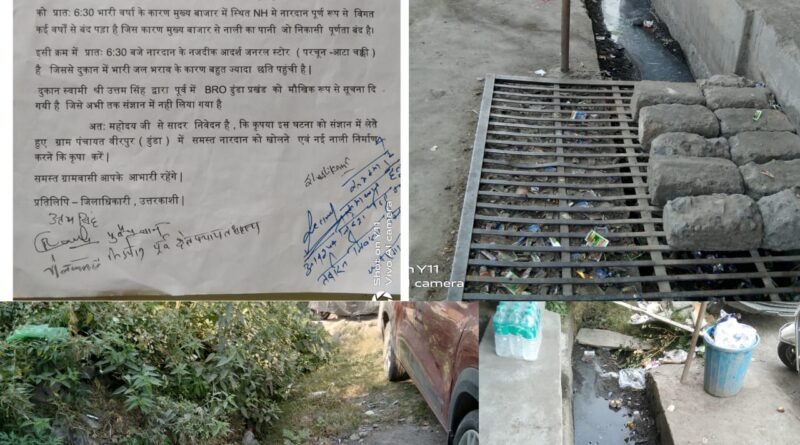 को प्रातः 6:30 भारी वर्षा के कारण मुख्य बाजार में स्थित NH मे नारदान पूर्ण रूप से विगत
कई वर्षो से बंद पड़ा है जिस कारण मुख्य बाजार से नाली का पानी जो निकासी पूर्णता बंद है।
इसी क्रम में प्रातः 6:30 बजे नारदान के नजदीक आदर्श जनरल स्टोर ( परचून -आटा चक्की )
है जिससे दुकान में भारी जल भराव के कारण बहुत ज्यादा छति पहुंची है |
दुकान स्वामी श्री उत्तम सिंह द्वारा पूर्व में BRO डुंडा प्रखंड को मौखिक रूप से सूचना दि
गयी है जिसे अभी तक संज्ञान में नही लिया गया है
अतः महोदय जी से सादर निवेदन है , कि कृपया इस घटना को संज्ञान में लेते
हुए ग्राम पंचायत वीरपुर ( डुंडा ) में समस्त नारदान को खोलने एवं नई नाली निर्माण
करने कि कृपा करें |
समस्त ग्रामवासी आपके आभारी रहेंगे |
प्रतिलिपि – जिलाधिकारी , उत्तरकाशी |
उत्तम सिंह
Shot on Y11
Vivo AI camera
on Y11
AI camera